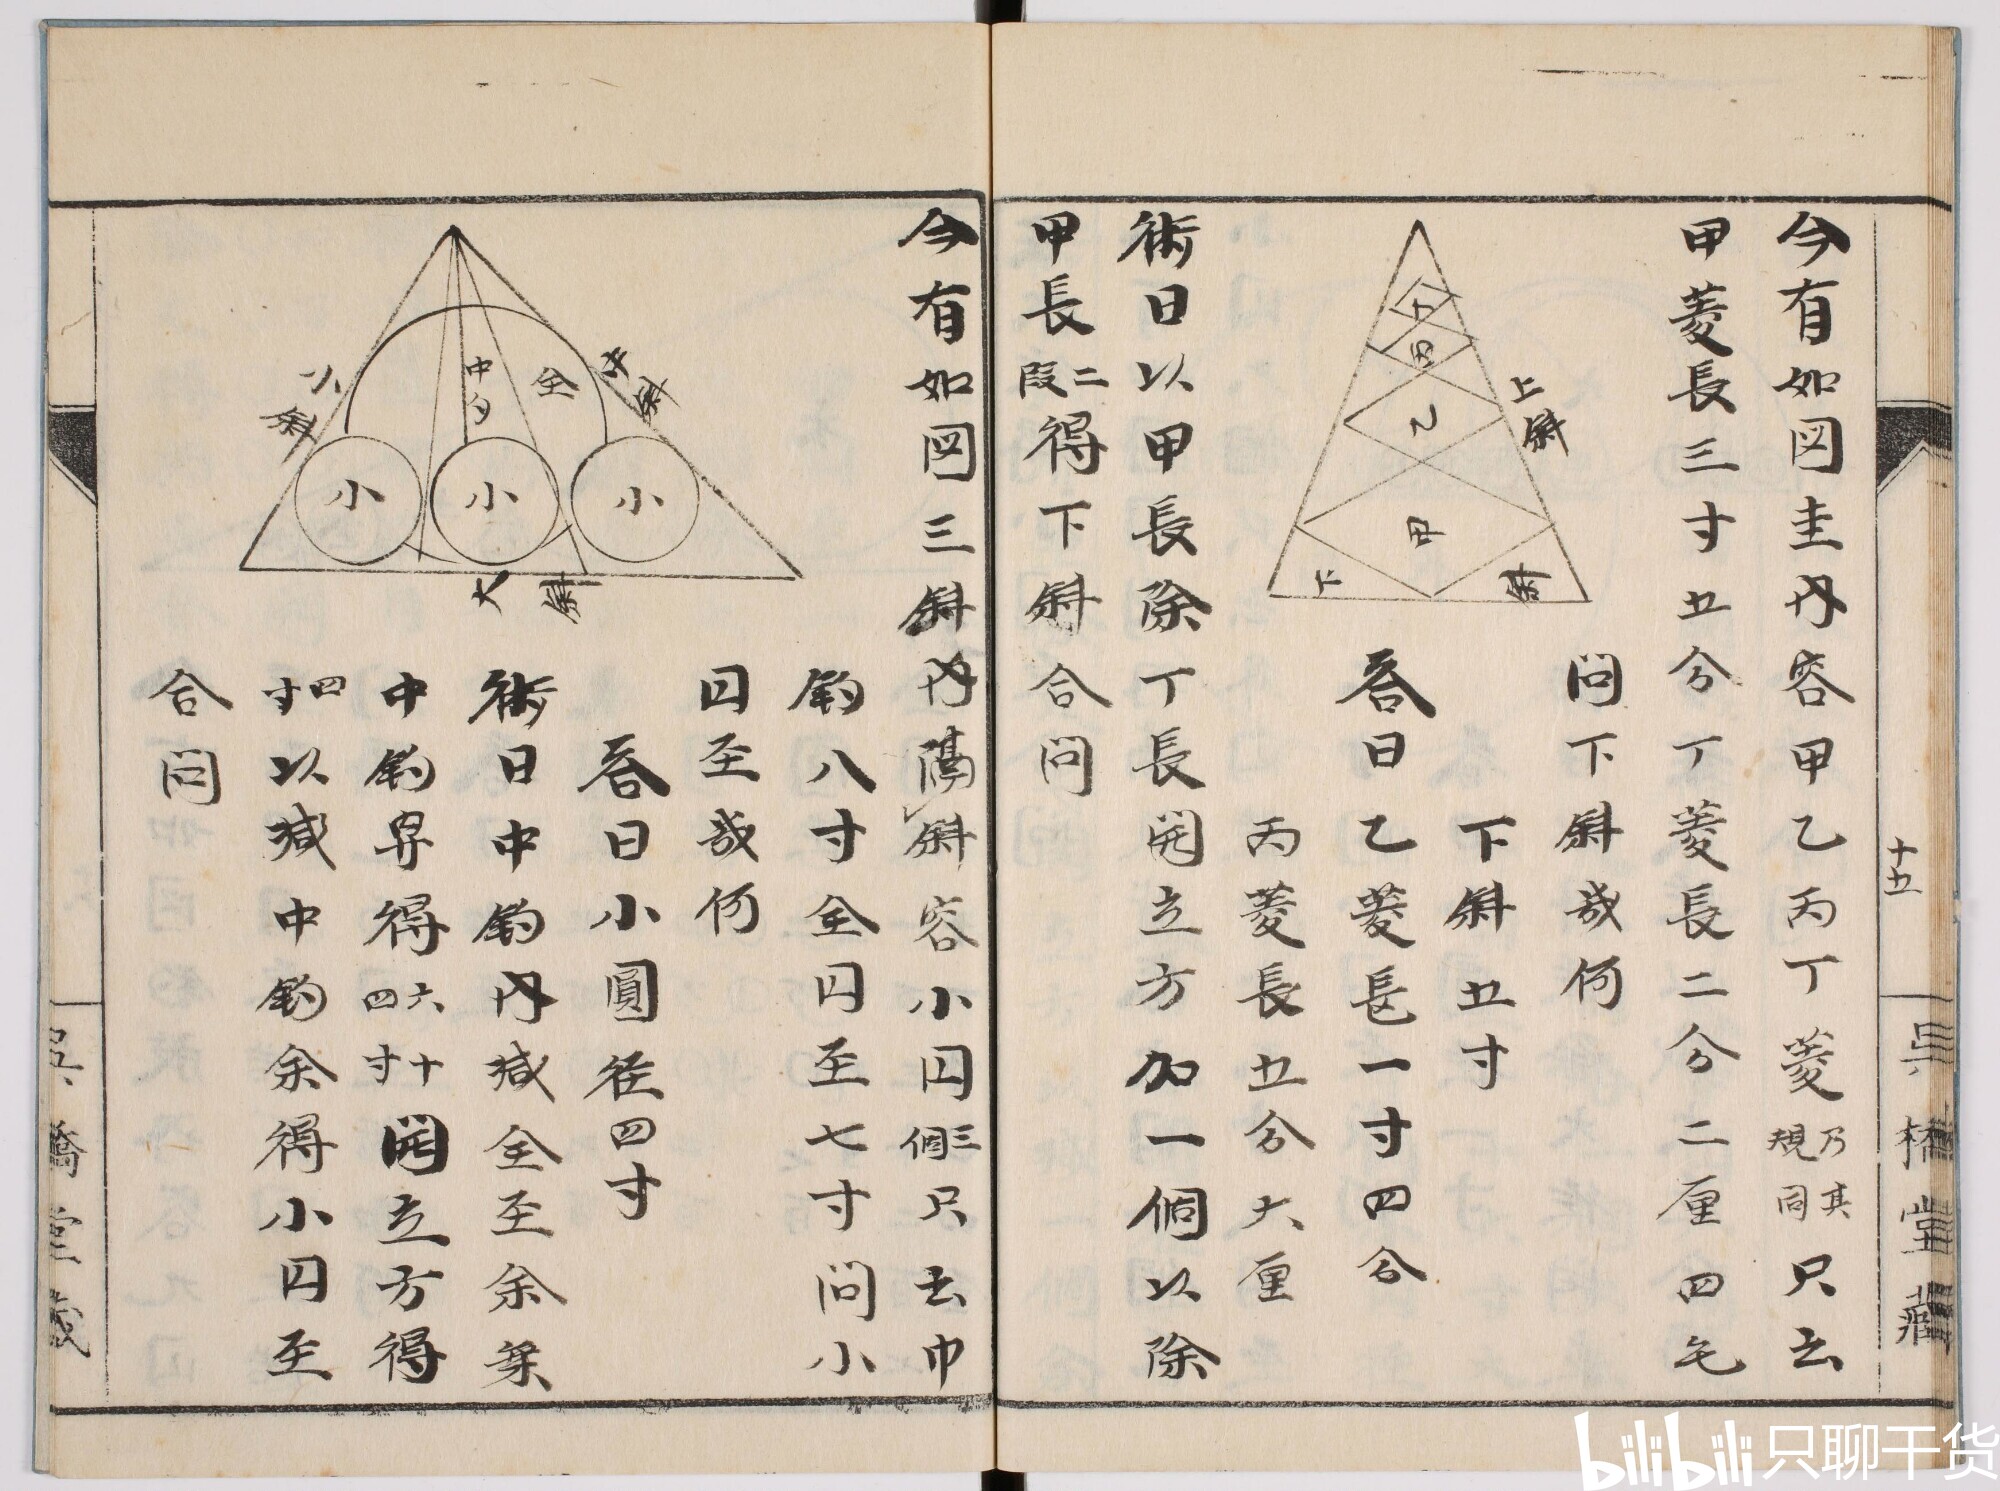 十五
呉橋堂藏
今有如図圭内容甲乙丙丁菱乃其規同只云
甲菱長三寸五分丁菱長二分二厘四毛
問下斜幾何
下斜五寸
答曰乙菱長一寸四分
丙菱長五分六厘
術曰以甲長除丁長開立方加一個以除
甲長二段得下斜合問
上斜
丁
丙
乙
甲
下斜
今有如図三斜内隔斜容小円三個只云中
鈎八寸全円至七寸問小
円至幾何
答曰小圓径四寸
術曰中鈎内減全至余乗
中鈎冪得六十四寸開立方得
四寸以減中鈎余得小円至
合問
中勾
全
小斜
小
小
小
大斜
呉橋堂藏
bilibili 只聊干货